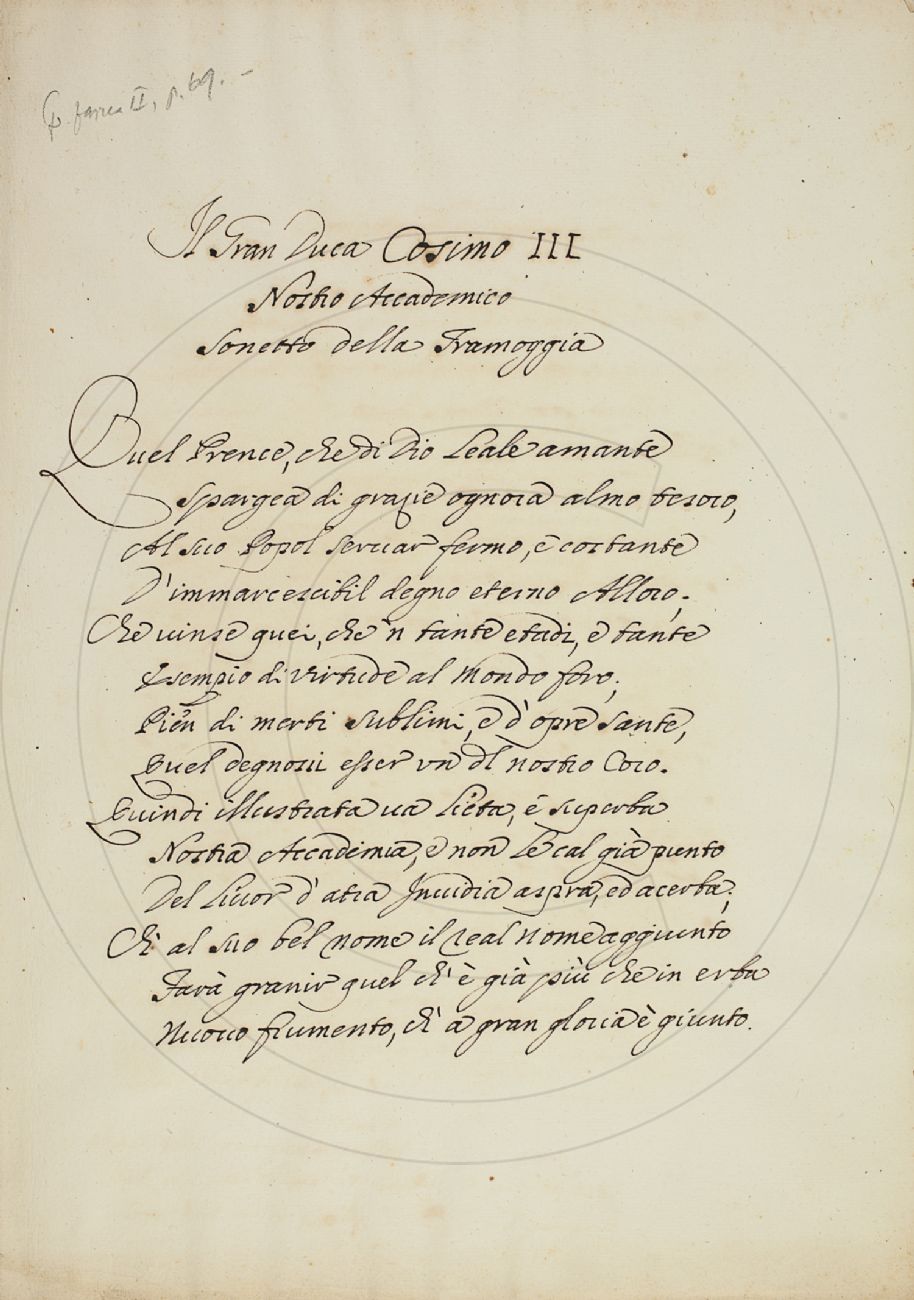 p. 69. -
Il Gran Duca Cosimo III
Nostro Accademico
Sonetto della Tramoggia
Quel Prence, che di Dio Leale amante
Spargea di grazie ognora almo tesoro,
Al suo Popol servar fermo, e costante
D'immarcescibil degno eterno Alloro;
Che vinse quei, che'n tante etadi, e tante
Esempio di Virtude al Mondo foro;
Pien di merti sublimi, e d'opre Sante,
Quel degnossi esser vn dl nostro Coro.
Quindi illustrata va lieta, e superba
Nostra Accademia, e non Le cal già punto
Del livor d'atra Invidia aspra, ed acerba;
Ch' al suo bel nome il real Nome aggiunto
Farà granir quel ch' è già più che in erba
Nuovo frumento, ch' a gran gloria è giunto.